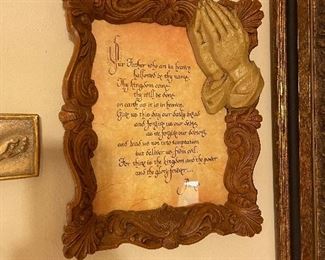 Our Father who art in heaven
hallowed be thy name.
Thy kingdom come.
thy will be done
on earth as it is in heaven.
Give us this day our daily bread
and forgive us our debts,
as we forgive our debtors,
and lead us not into temptation
but deliver us from evil.
For thine is the kingdom and the power
and the glory forever...
Amen